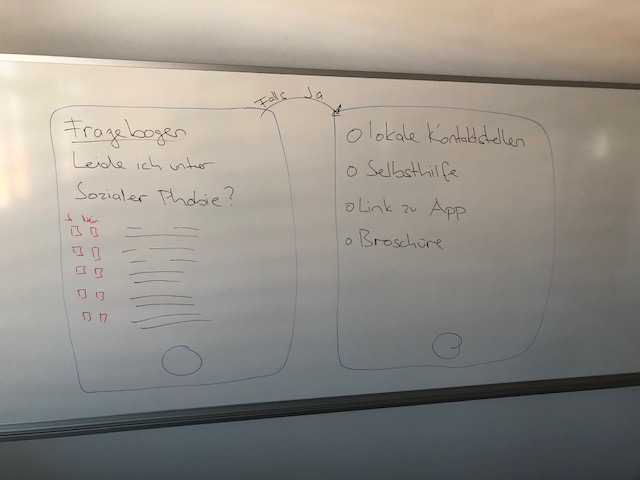 Falls Ja
Fragebogen
Leide ich unter
Sozialer Phobie?
Ja Nein
lokale Kontaktstellen
Selbsthilfe
Link zu App
Broschüre